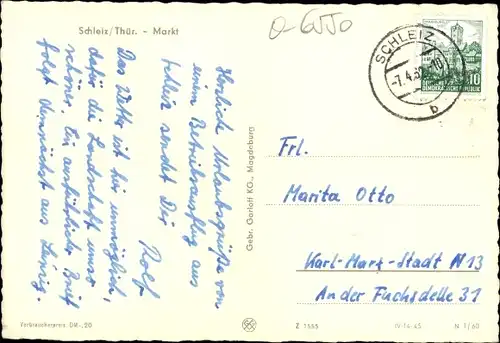 Schleiz/Thür. - Markt
0-6550
Herzliche Urlaubsgrüße von
einem Betriebsausflug aus
Schleiz sendet Dir
Rolf
Das Wetter ist hier unmöglich,
dafür die Landschaft umso
schöner. Ein ausführlicher Brief
folgt demnächst aus
Gebr. Garloff KG., Magdeburg
SCHLEIZ
-7.4.6
b
10
DEUTSCHE DEMOKRATISCHE REPUBLIK
Frl.
Marita Otto
Karl-Marx-Stadt N 13
An der Fuchsdelle 31
Verbraucherpreis DM -,20
Z 1555
IV-14-45
N 1/60